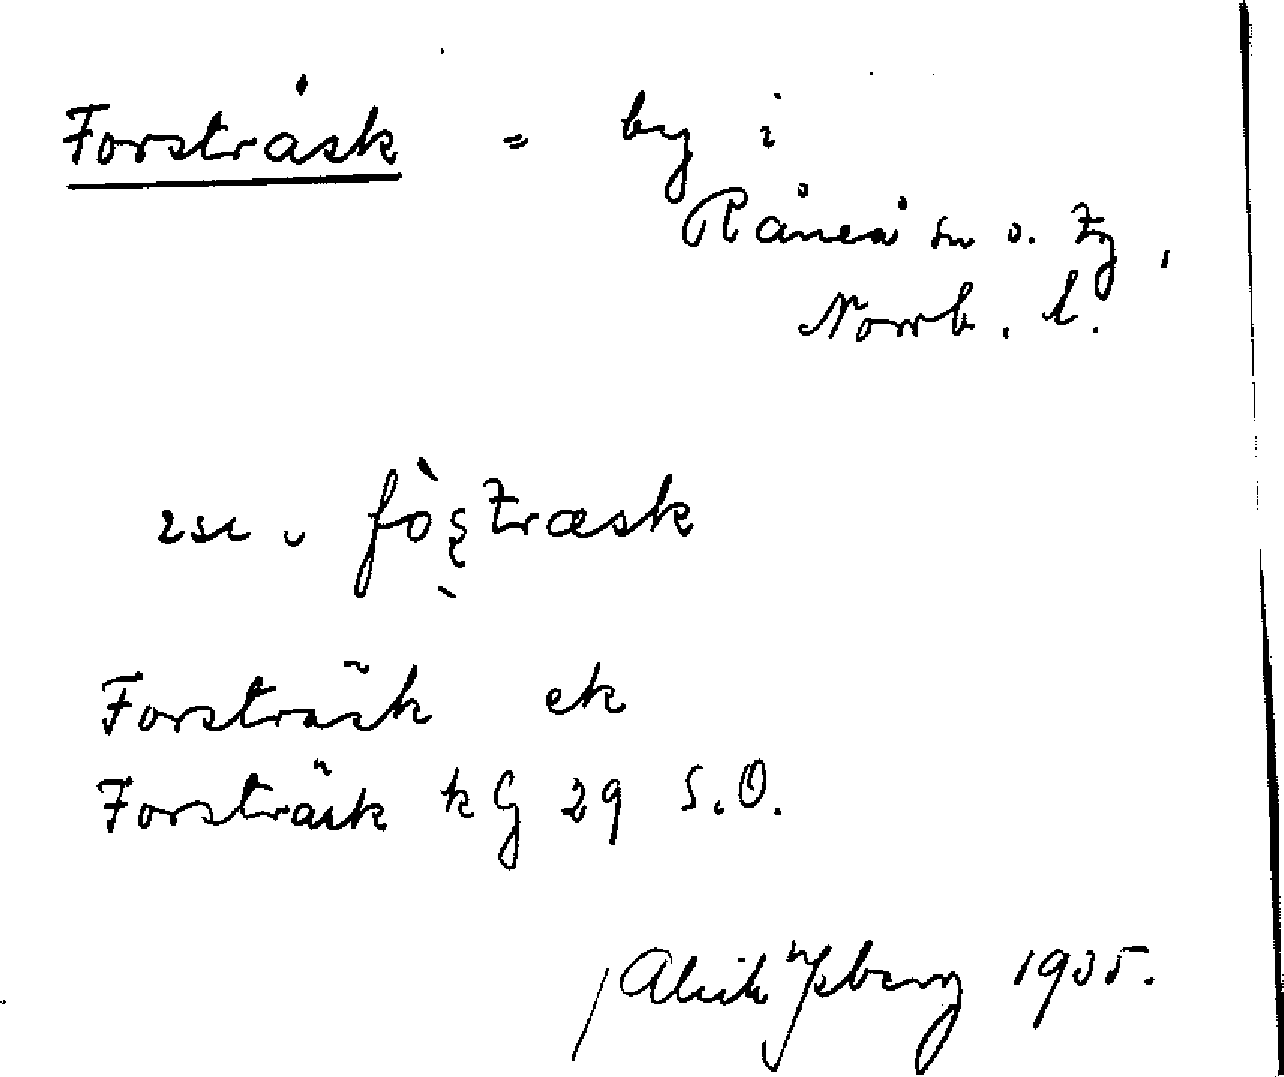 Forsträsk = by i
Råneå sn o. tg,
Norrb. l.
fòʂtræsk
Forsträsk ek
Forsträsk kG 29 S.O.
1935.